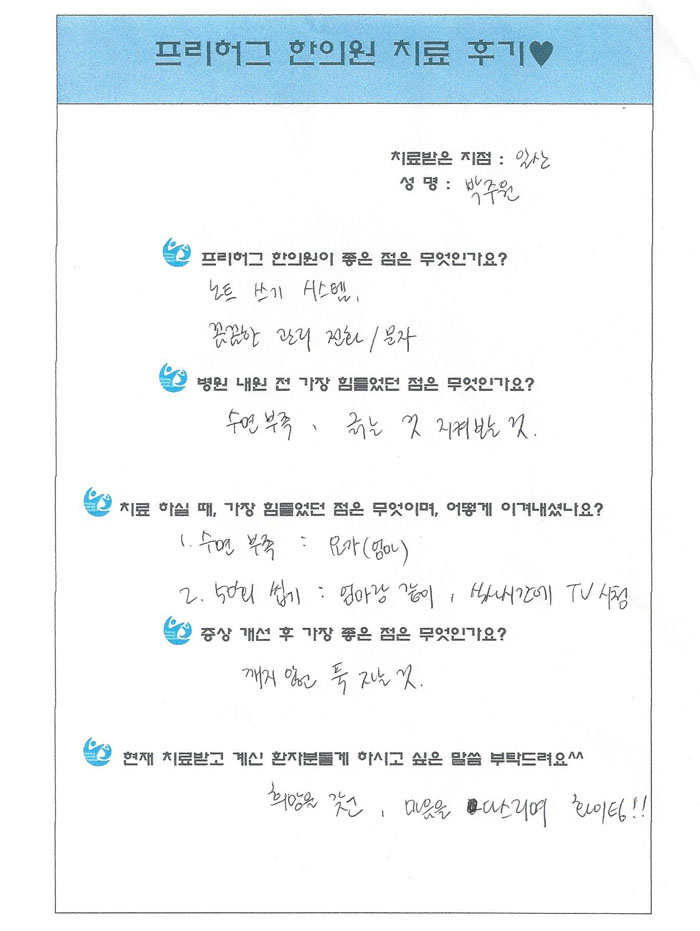 프리허그 한의원 치료 후기♥
치료받은 지점 : 일산
성 명 : 박주원
프리허그 한의원이 좋은 점은 무엇인가요?
노트 쓰기 시스템,
꼼꼼한 관리 전화/문자
병원 내원 전 가장 힘들었던 점은 무엇인가요?
수면부족, 긁는 것 지켜보는 것.
치료 하실 때, 가장 힘들었던 점은 무엇이며, 어떻게 이겨내셨나요?
1. 수면 부족 : 요가(엄마)
2. 50회 씹기 : 엄마랑 같이, 식사시간에 TV 시청
증상 개선 후 가장 좋은 점은 무엇인가요?
깨지 않고 푹 자는 것.
현재 치료받고 계신 환자분들게 하시고 싶은 말씀 부탁드려요^^
희망을 갖고, 마음을 다스리며 화이팅!!